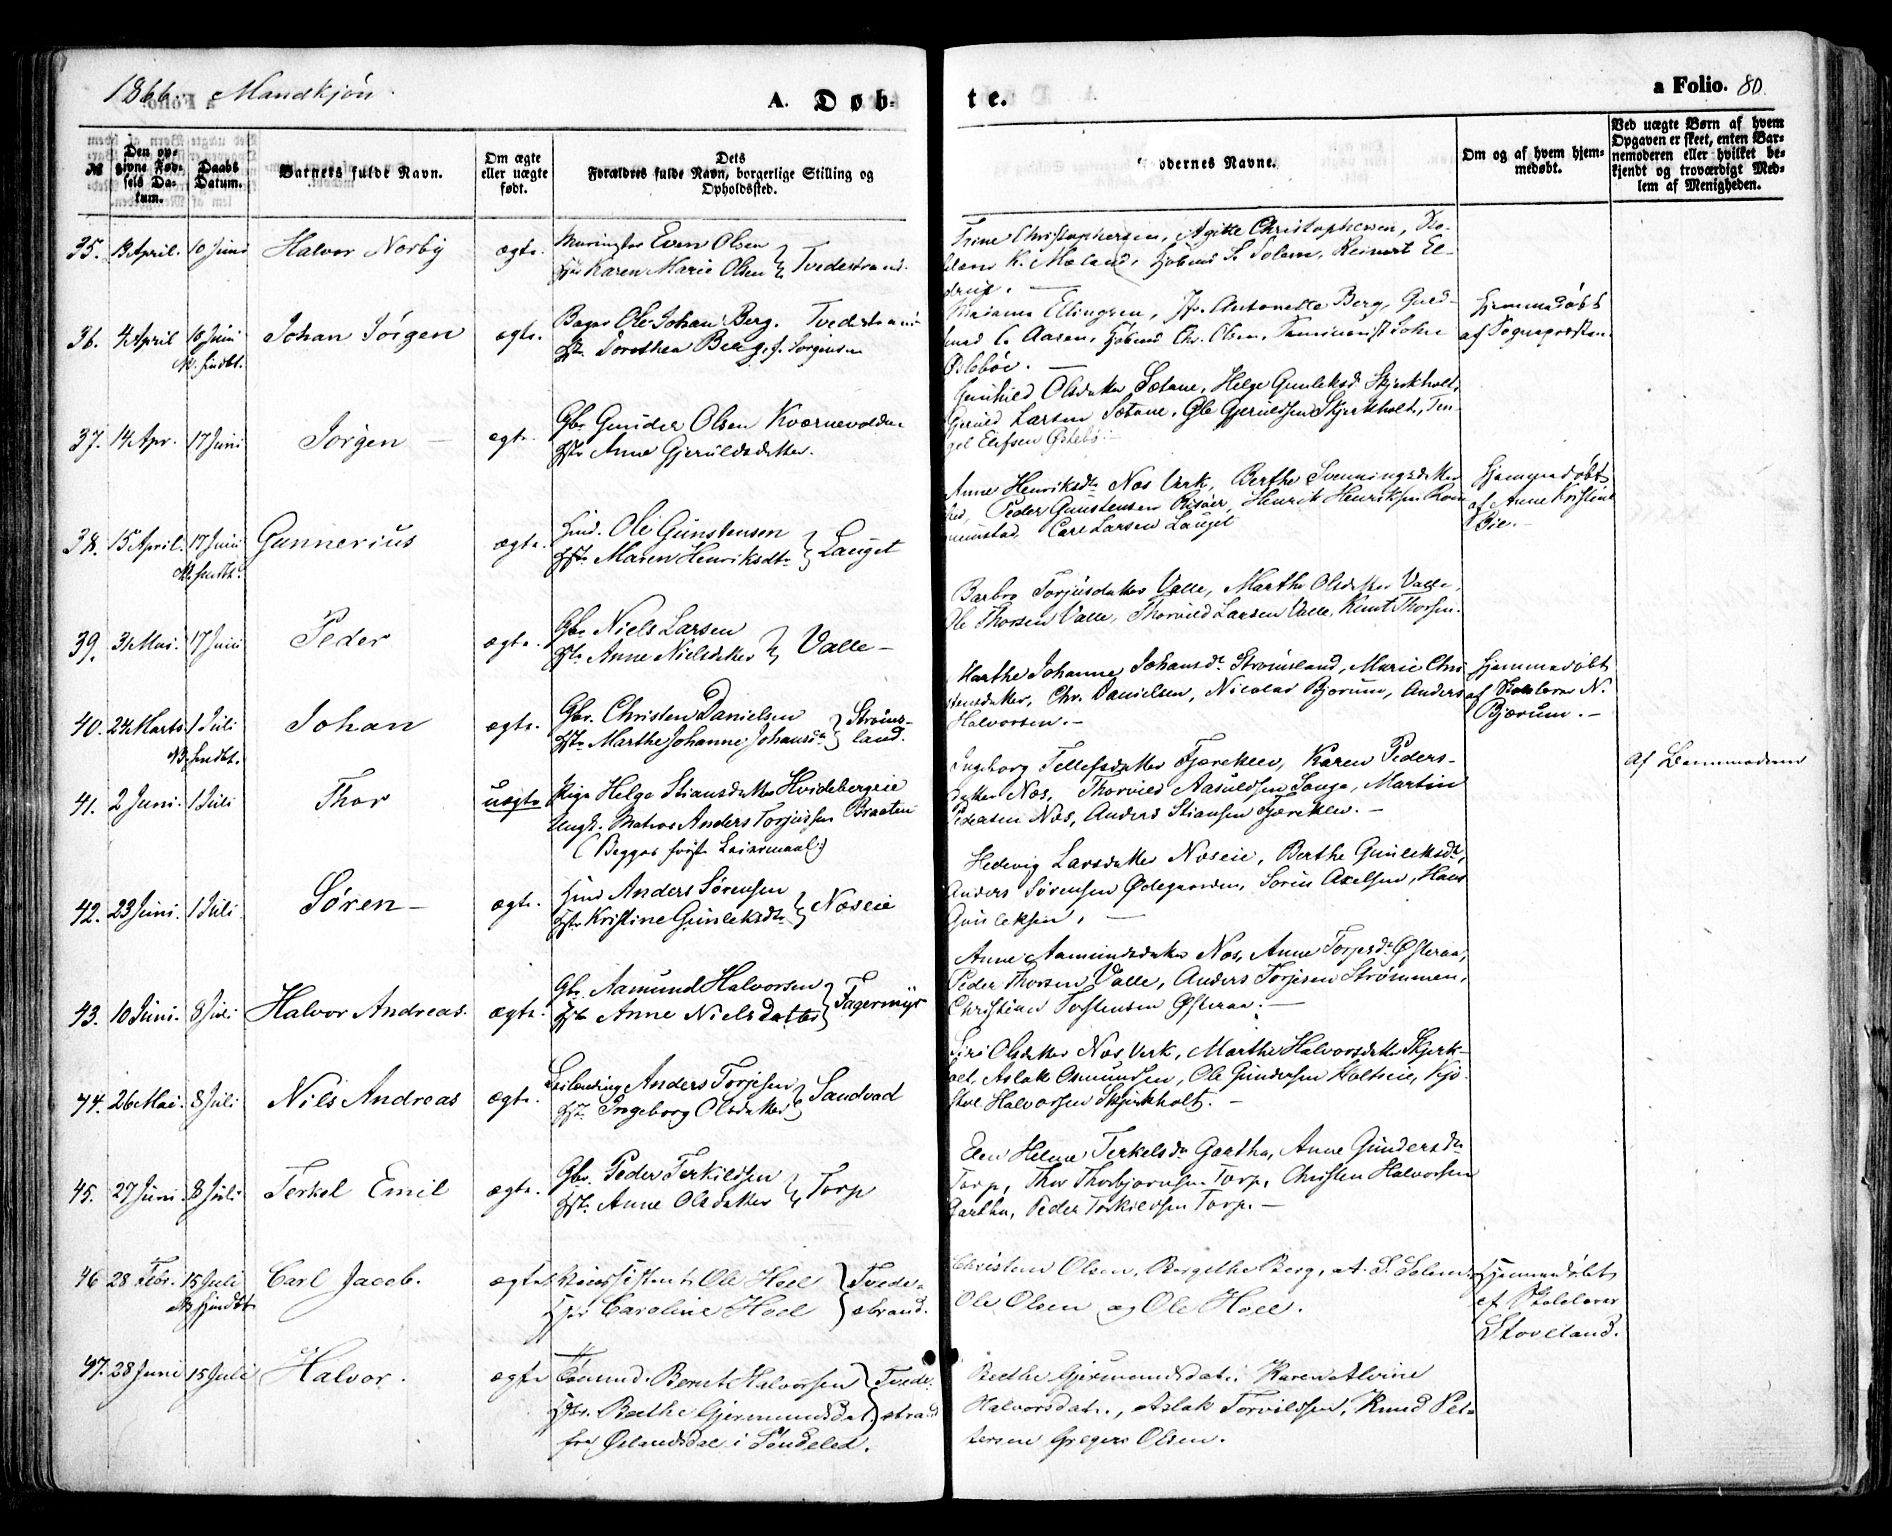 1866. Mandkjøn.
A. Døb-
te.
a Folio. 80.
№
Den op-
givne Fød-
sels Da-
tum.
Daabs
Datum.
Barnets fulde Navn.
Om ægte
eller uægte
født.
Dets
Forældres fulde Navn, borgerlige Stilling og
Opholdssted.
odernes Navne.
Om og af hvem hjem-
medøbt.
Ved uægte Børn af hvem
Opgaven er skeet, enten Bar-
nemoderen eller hvilket be-
kjendt og troværdigt Med-
lem af Menigheden.
35. 13 April. 10 Juni Halvor Norby ægte. Even Olsen
Karen Marie Olsen } Tvedestrand.
Trine Christophersen, Agitte Christophersen,
K. Mæland, S. Solem, Reinert El-
drup.
36. 4 April 10 Juni Johan Jørgen ægte. Bager Ole Johan Berg. Tvedestrand
Hjindbt. Hst. Dorothea Berg, f. Jørgensen
Mariane Ellingsen, Jfr. Antonette Berg, Gud-
mund C. Aasen, Chr. Olsen, John
Østebøe.
Hjemmedøbt
af Sognepræsten.
37. 14 Apr. 17 Juni Jørgen — ægte. Gbr. Gunder Olsen Kværnevolden
Hst. Anne Gjeruldsdatter.
Gunhild Olsdatter Sætane, Helge Gunleksd. Skjerkholt,
Gjeruld Larsen Sætane, Ole Gjeruldsen Skjerkholt, Ten-
gel Elefsen Østebø.
38. 15 April. 17 Juni Gunnerius ægte. Hmd. Ole Gunstensen
Hst. Maren Henriksdtr } Lauget
Anne Henriksdtr Næs Verk, Berthe Svenningsdatter
Peder Gunstensen Risøer, Henrik Henriksen
Carl Larsen Lauget
Hjemmedøbt
af Anne Kristine
Bie.
39. 31 Mai. 17 Juni Peder ægte. Gbr. Niels Larsen
Hst. Anne Nielsdatter } Valle —
Barbro Torjusdatter Valle, Marthe Olsdatter Valle,
Ole Thorsen Valle, Thorvild Larsen Valle, Knut Thorsen.
40. 24 Marts. 1 Juli Johan ægte. Gbr. Christen Danielsen
NB. hmdbt. Hst. Marthe Johanne Johansdr } Strøms-
land.
Marthe Johanne Johansdr. Strømsland, Marie Chri-
stensdatter, Chr. Danielsen, Nicolai Bjorum, Anders
Halvorsen. —
Hjemmedøbt
af Skolelærer N.
Bjærum. —
41. 2 Juni. 1 Juli Thor uægte Pige Helge Stiansdatter Hvidebergeie
Ungk. Matros Anders Torjusen Braaten
(Begges første Leiermaal.)
Ingeborg Tellefsdatter Fjærekleiv, Karen Peders-
datter Næs, Thorvild Aasuldsen Songe, Martin
Pedersen Næs, Anders Stiansen Fjærekleiv. —
Af Barnemoderen
42. 23 Juni. 1 Juli Søren — ægte. Hmd Anders Sørensen
Hst Kristine Gunleksdtr } Næseie
Hedevig Larsdatter Næseie, Berthe Gunleksdtr,
Anders Sørensen Ødegaarden, Søren Axelsen, Hans
Gunleksen, —
43. 10 Juni. 8 Juli Halvor Andreas. ægte. Gbr. Aamund Halvorsen
Hst Anne Nielsdatter } Fagermyr
Anne Aamundsdatter Næs, Anne Torjesdr. Østeraa,
Peder Thorsen Valle, Anders Torjesen Strømmen,
Christian Torstensen Østeraa. —
44. 26 Mai. 8 Juli Nils Andreas ægte. Leilending Anders Torjesen
Hst. Ingeborg Olsdatter } Sandvad
Siri Olsdatter Næs Verk, Marthe Halvorsdatter Skjerk-
holt, Aslak Osmundsen, Ole Gundersen Holtseie, Kjø-
stol Halvorsen Skjerkholt. —
45. 27 Juni. 8 Juli Terkel Emil ægte. Gbr. Peder Terkildsen
Hst. Anne Olsdatter } Torp
Elen Helene Terkelsdr Gartha, Anne Gundersdtr
Torp, Thor Thorbjørnsen Torp, Christen Halvorsen
Gartha, Peder Torkildsen Torp. —
46 28 Febr. 15 Juli Carl Jacob. ægte Ole Hoel
NB Hjmdbt Caroline Hoel } Tvede-
strand.
Christine Olsen, Bergethe Berg, A. S. Solem,
Ole Olsen og Ole Hoel.
Hjemmedøbt
af Skolelærer
Stoveland.
47. 28 Juni 15 Juli Halvor. ægte Tømmd. Bernt Halvorsen
Hst. Berthe Gjermundsdat } Tvede-
strand
fra Øslandsdal i Søndeled.
Berthe Gjermundsdat., Karen Alvine
Halvorsdat., Aslak Torvildsen, Knud Pet-
tersen Gregers Olsen.